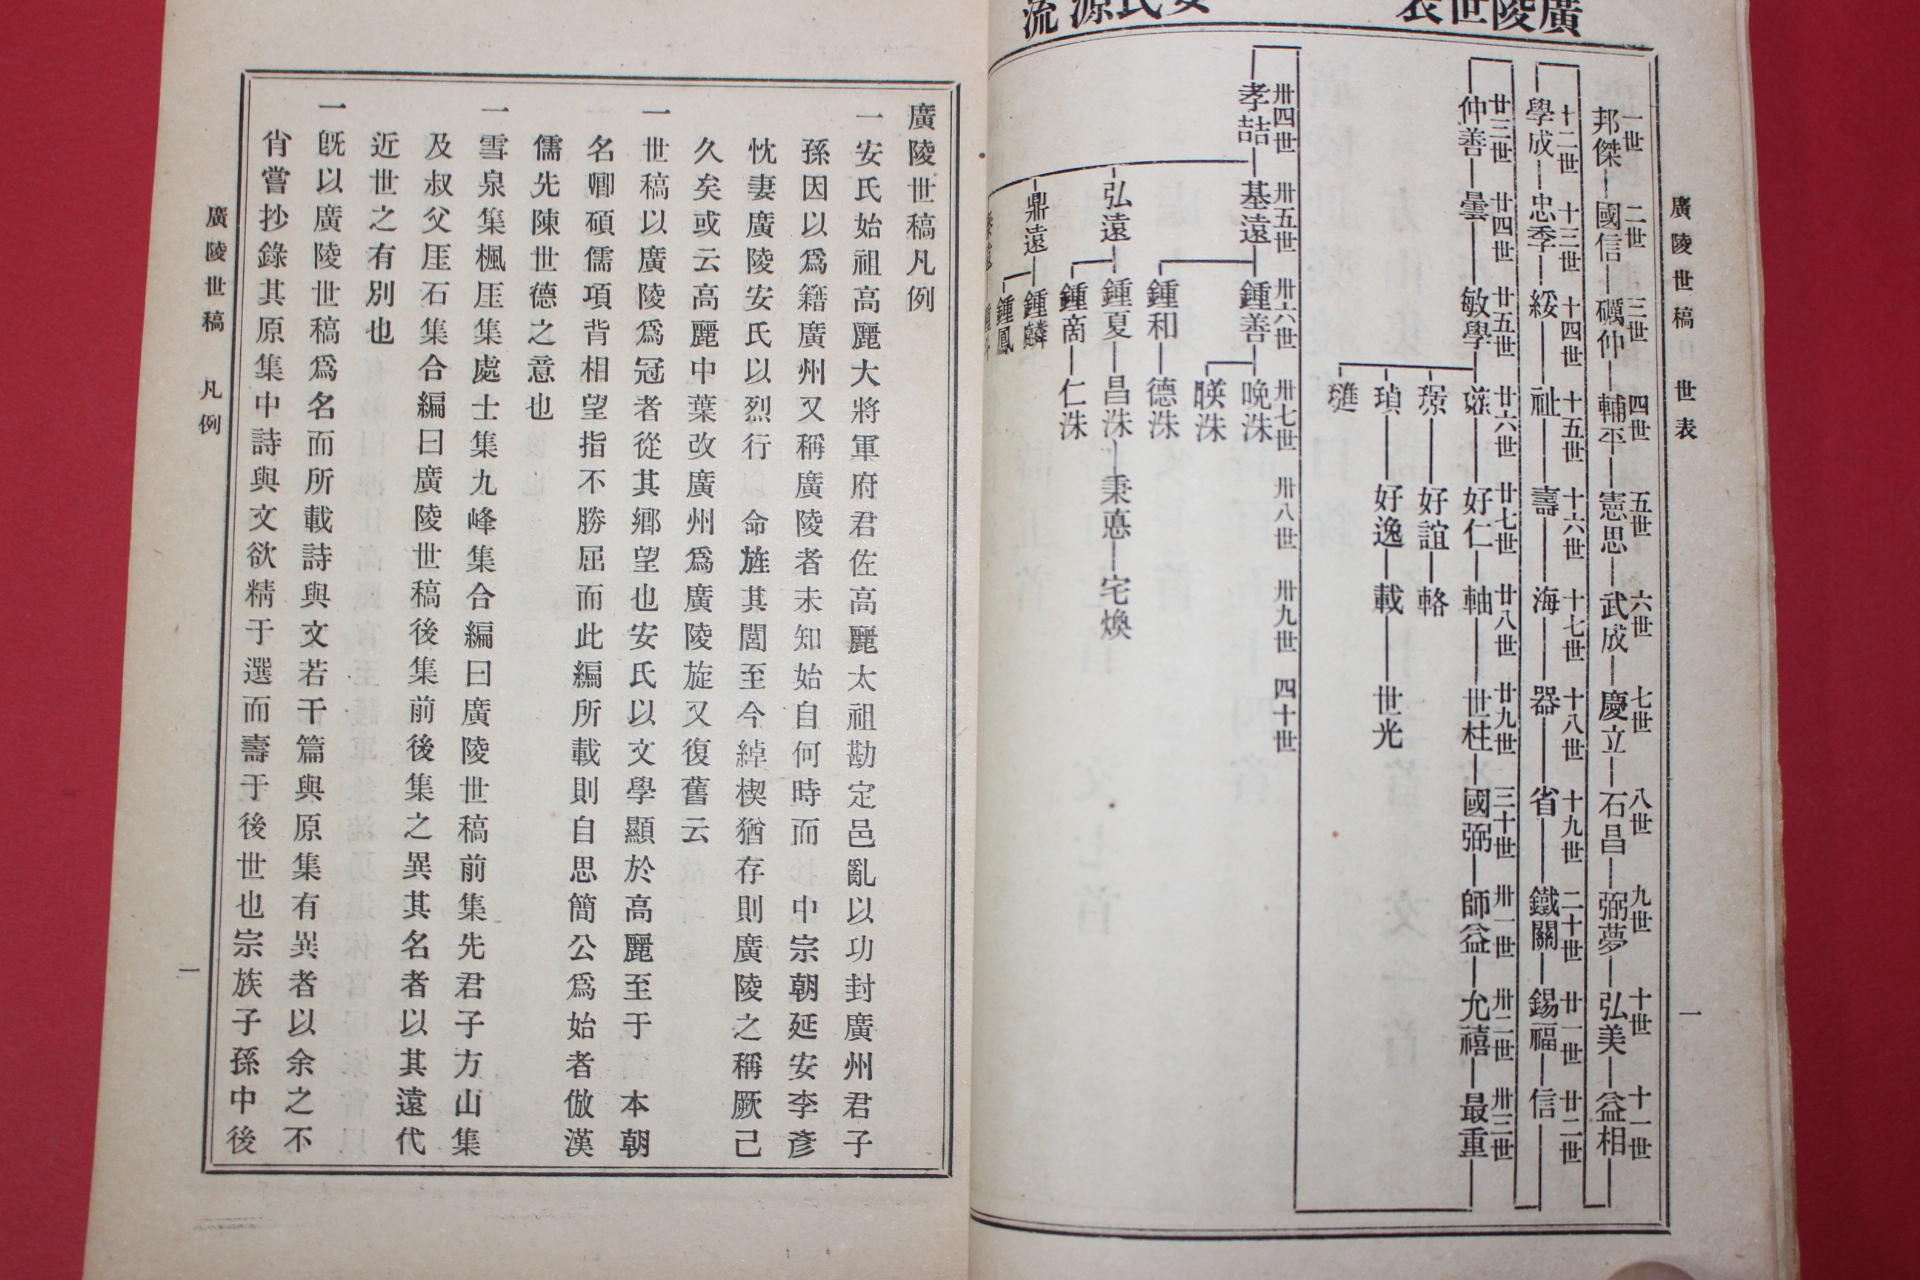 廣陵世表
安氏源流
廣陵世稿 世表
一
一世 二世 三世 四世 五世 六世 七世 八世 九世 十世 十一世
邦傑 國信 礪仲 輔平 憲思 武成 慶立 石昌 弼夢 弘美 益相
十二世 十三世 十四世 十五世 十六世 十七世 十八世 十九世 二十世 廿一世 廿二世
學成 忠季 綏 祉 壽 海 器 省 鐵關 錫福 信
廿三世 廿四世 廿五世 廿六世 廿七世 廿八世 廿九世 三十世 卅一世 卅二世 卅三世
仲善 曇 敏學 好仁 軸 世柱 國弼 師益 允禧 最重
璟 好誼 輅
瑣 好逸 載 世光
璡
卅四世 卅五世 卅六世 卅七世 卅八世 卅九世 四十世
孝喆 基遠 鍾善 晩洙
朕洙
鍾和 德洙
弘遠 鍾夏 昌洙 秉悳 宅煥
鍾商 仁洙
鼎遠 鍾麟
鍾鳳
廣陵世稿凡例
一安氏始祖高麗大將軍府君佐高麗太祖勘定邑亂以功封廣州君子
孫因以爲籍廣州又稱廣陵者未知始自何時而 中宗朝延安李彥
忱妻廣陵安氏以烈行 命旌其閭至今綽楔猶存則廣陵之稱厥己
久矣或云高麗中葉改廣州爲廣陵旋又復舊云
一世稿以廣陵爲冠者從其鄕望也安氏以文學顯於高麗至于 本朝
名卿碩儒項背相望指不勝屈而此編所載則自思簡公爲始者倣漢
儒先陳世德之意也
一雪泉集楓厓集處士集九峰集合編曰廣陵世稿前集先君子方山集
及叔父厓石集合編曰廣陵世稿後集前後集之異其名者以其遠代
近世之有別也
一旣以廣陵世稿爲名而所載詩與文若干篇與原集有異者以余之不
肖嘗抄錄其原集中詩與文欲精于選而壽于後世也宗族子孫中後
廣陵世稿 凡例
一